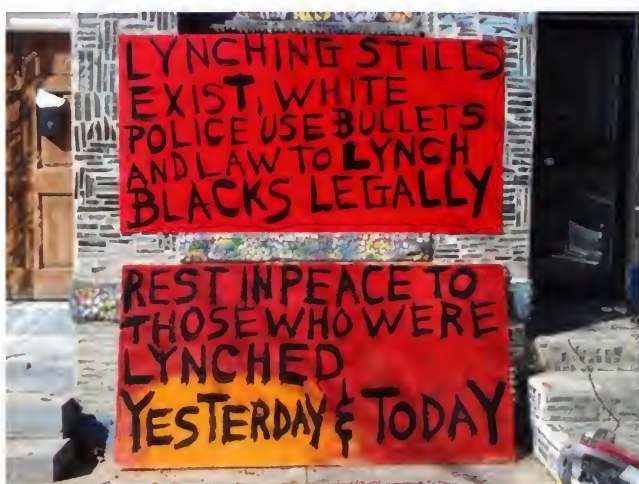 LYNCHING STILLS
EXIST, WHITE
POLICE USE BULLETS
AND LAW TO LYNCH
BLACKS LEGALLY
REST IN PEACE TO
THOSE WHO WERE
LYNCHED
YESTERDAY & TODAY